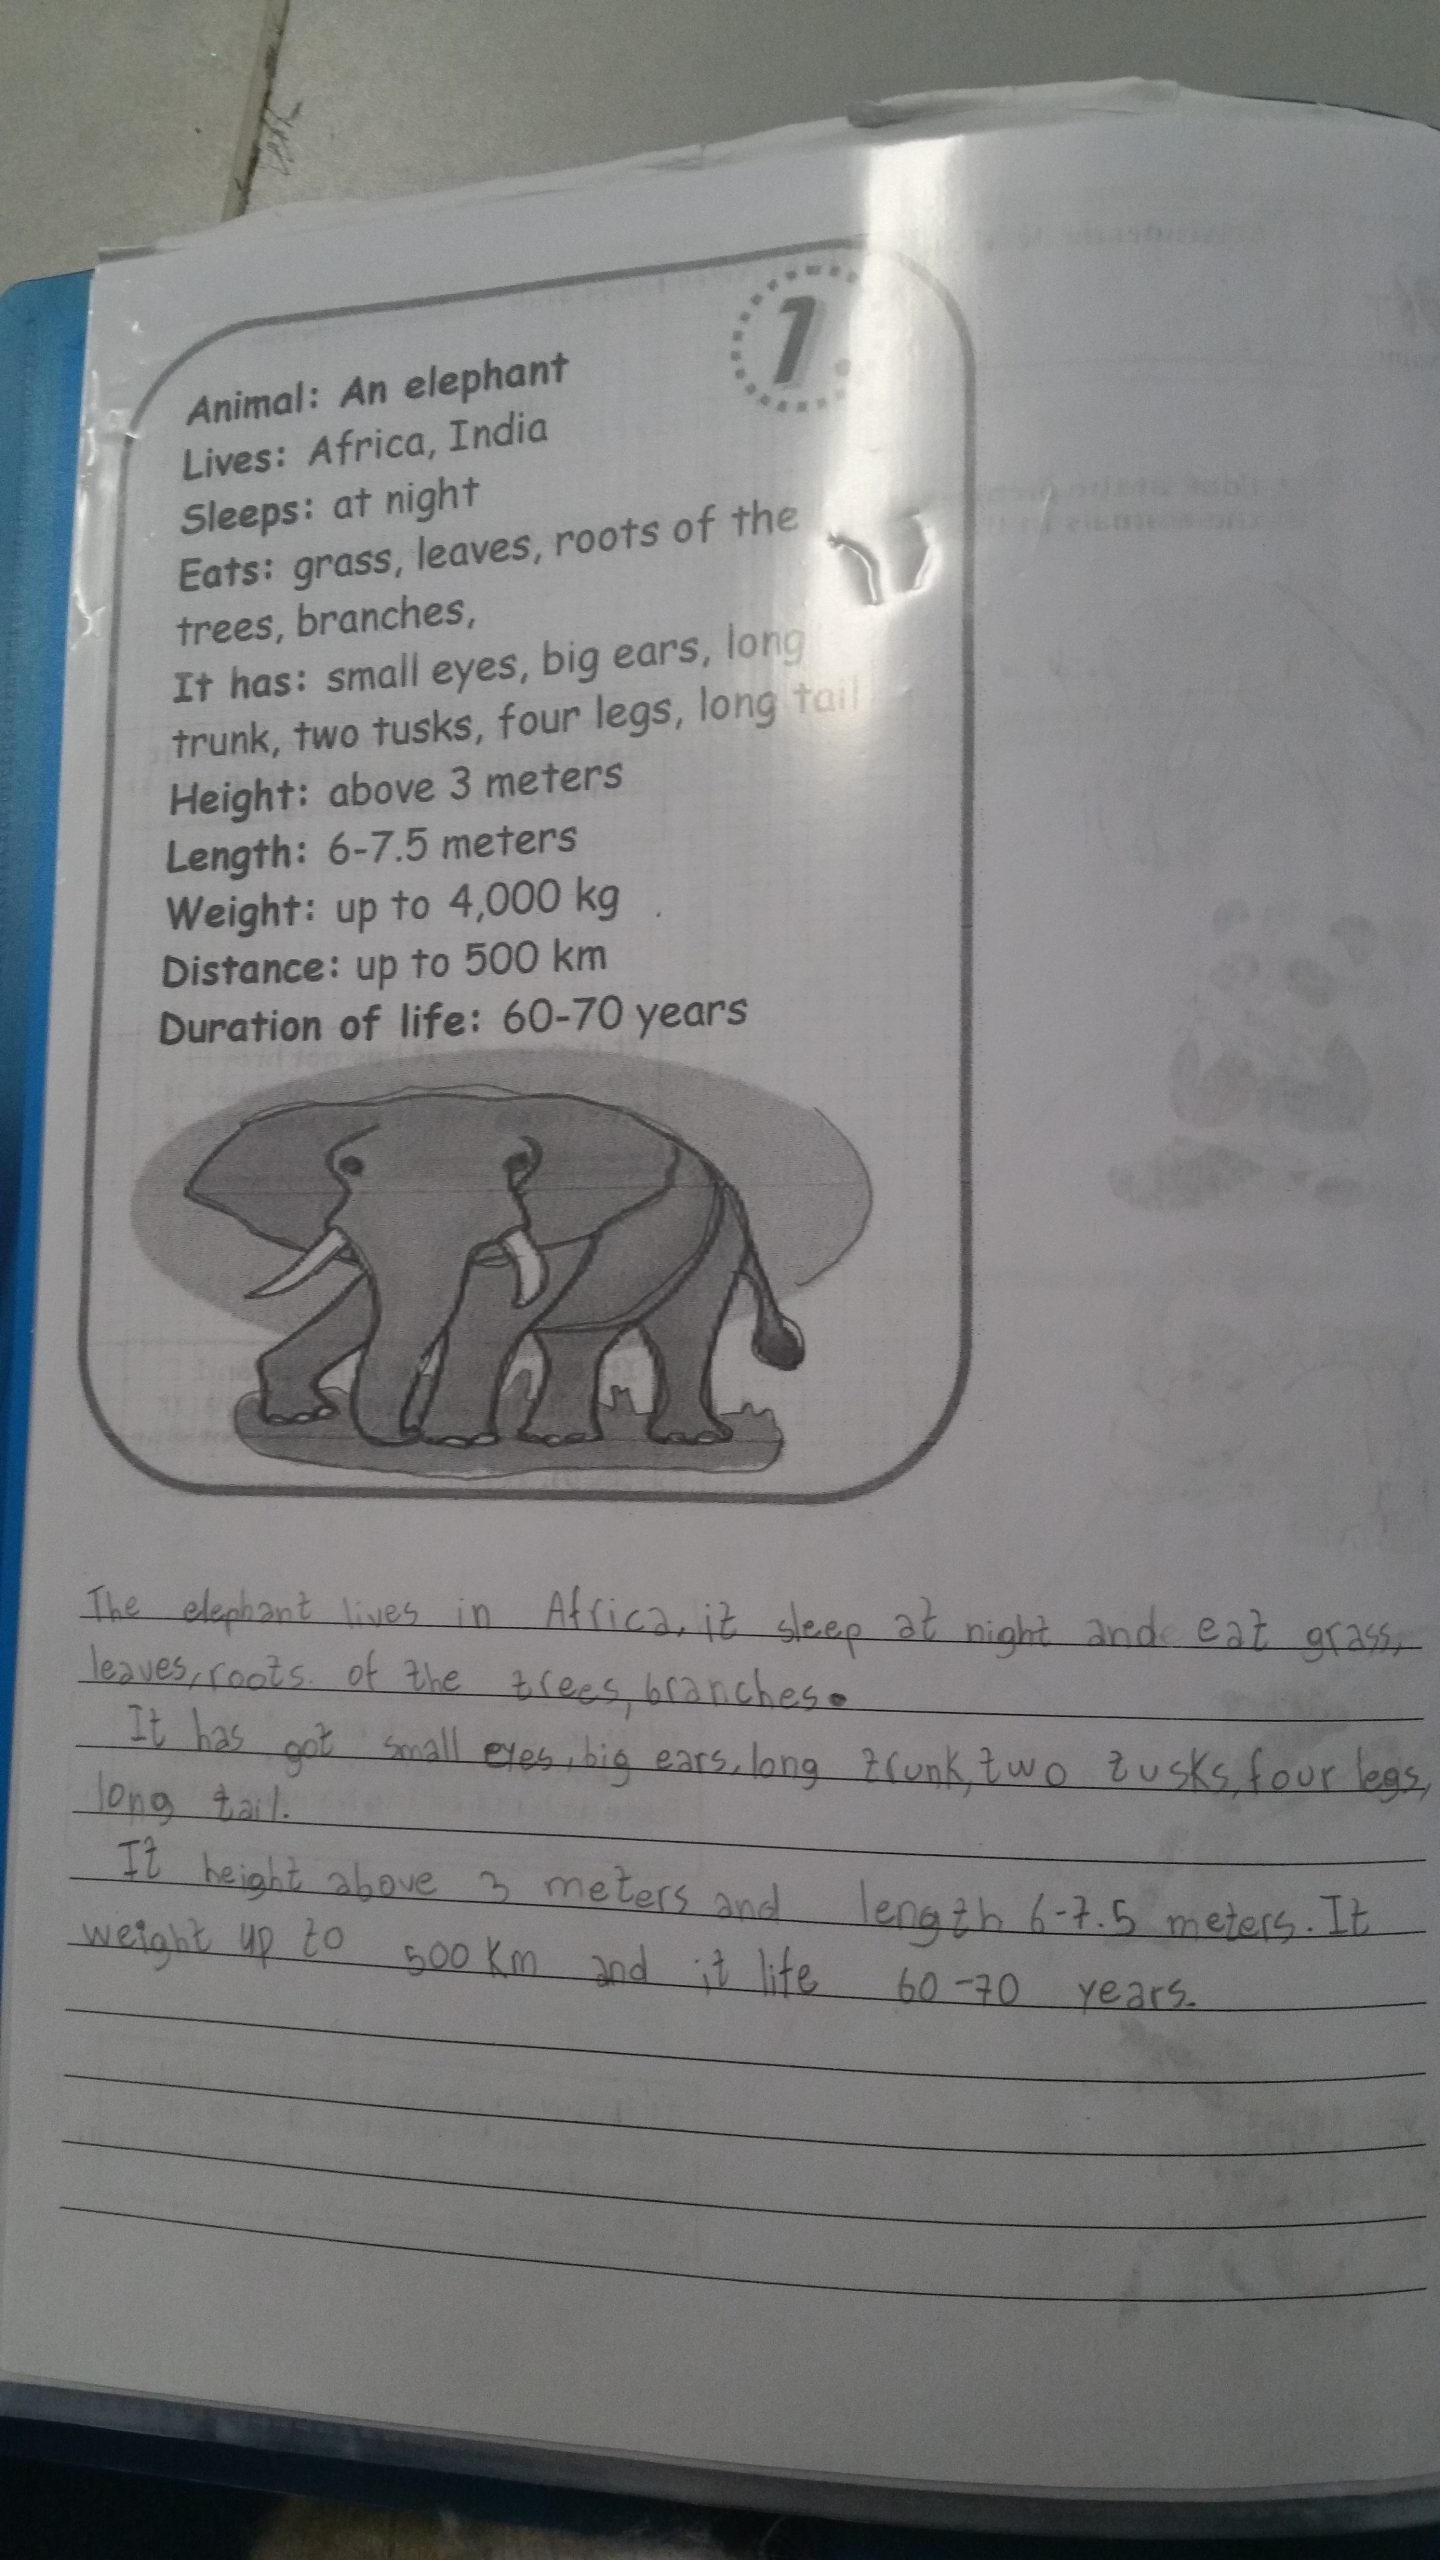 1
Animal: An elephant
Lives: Africa, India
Sleeps: at night
Eats: grass, leaves, roots of the
trees, branches,
It has: small eyes, big ears, long
trunk, two tusks, four legs, long tail
Height: above 3 meters
Length: 6-7.5 meters
Weight: up to 4,000 kg
Distance: up to 500 km
Duration of life: 60-70 years
The elephant lives in Africa, it sleep at night and eat grass,
leaves, roots of the trees, branches.
It has got small eyes, big ears, long trunk, two tusks, four legs,
long tail.
It height above 3 meters and length 6-7.5 meters. It
weight up to 500 Km and it life 60-70 years.